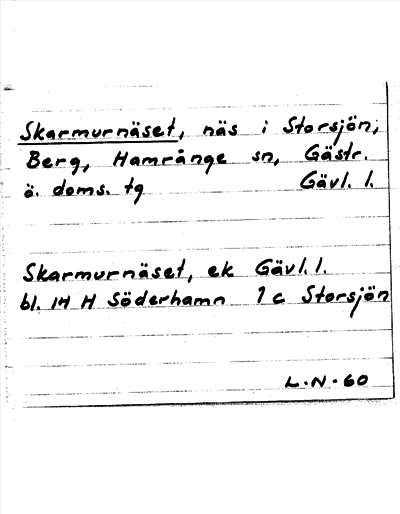 Skarmurnäset, näs i Storsjön,
Berg, Hamrånge sn, Gästr.
ö. doms. tg Gävl. l.
Skarmurnäset, ek Gävl. l.
bl. 14 H Söderhamn 1 c Storsjön
L.N-60